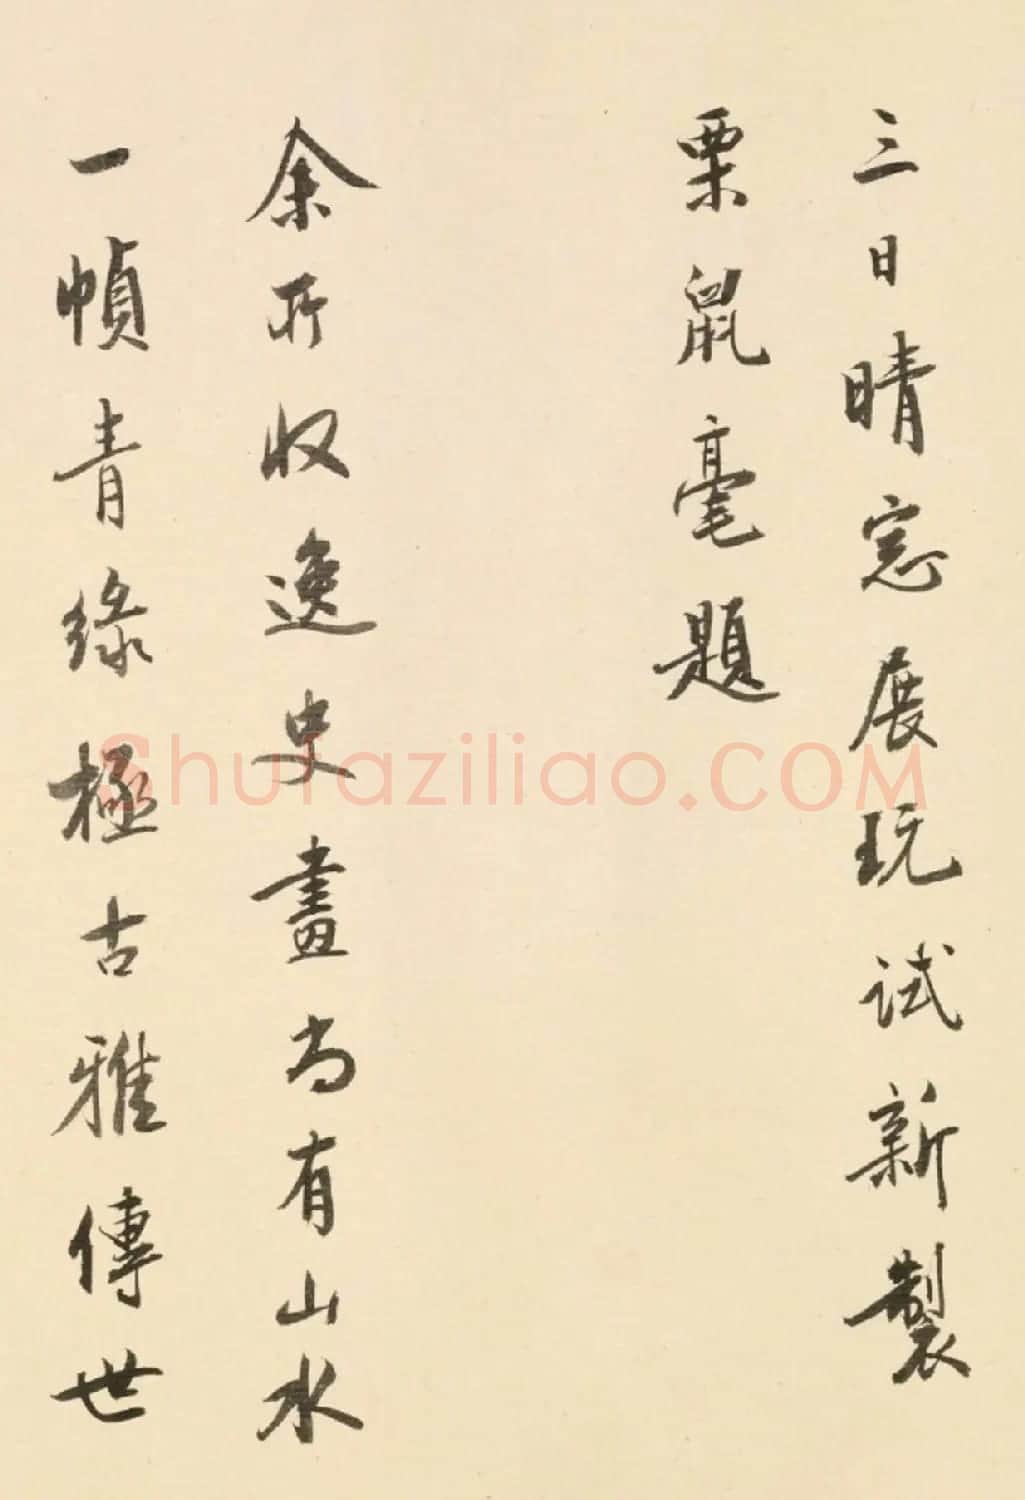 三日晴窓展玩試新製
栗鼠毫題
余所收逸史畫尚有山水
一幀青綠極古雅傳世
Shufaziliao.COM